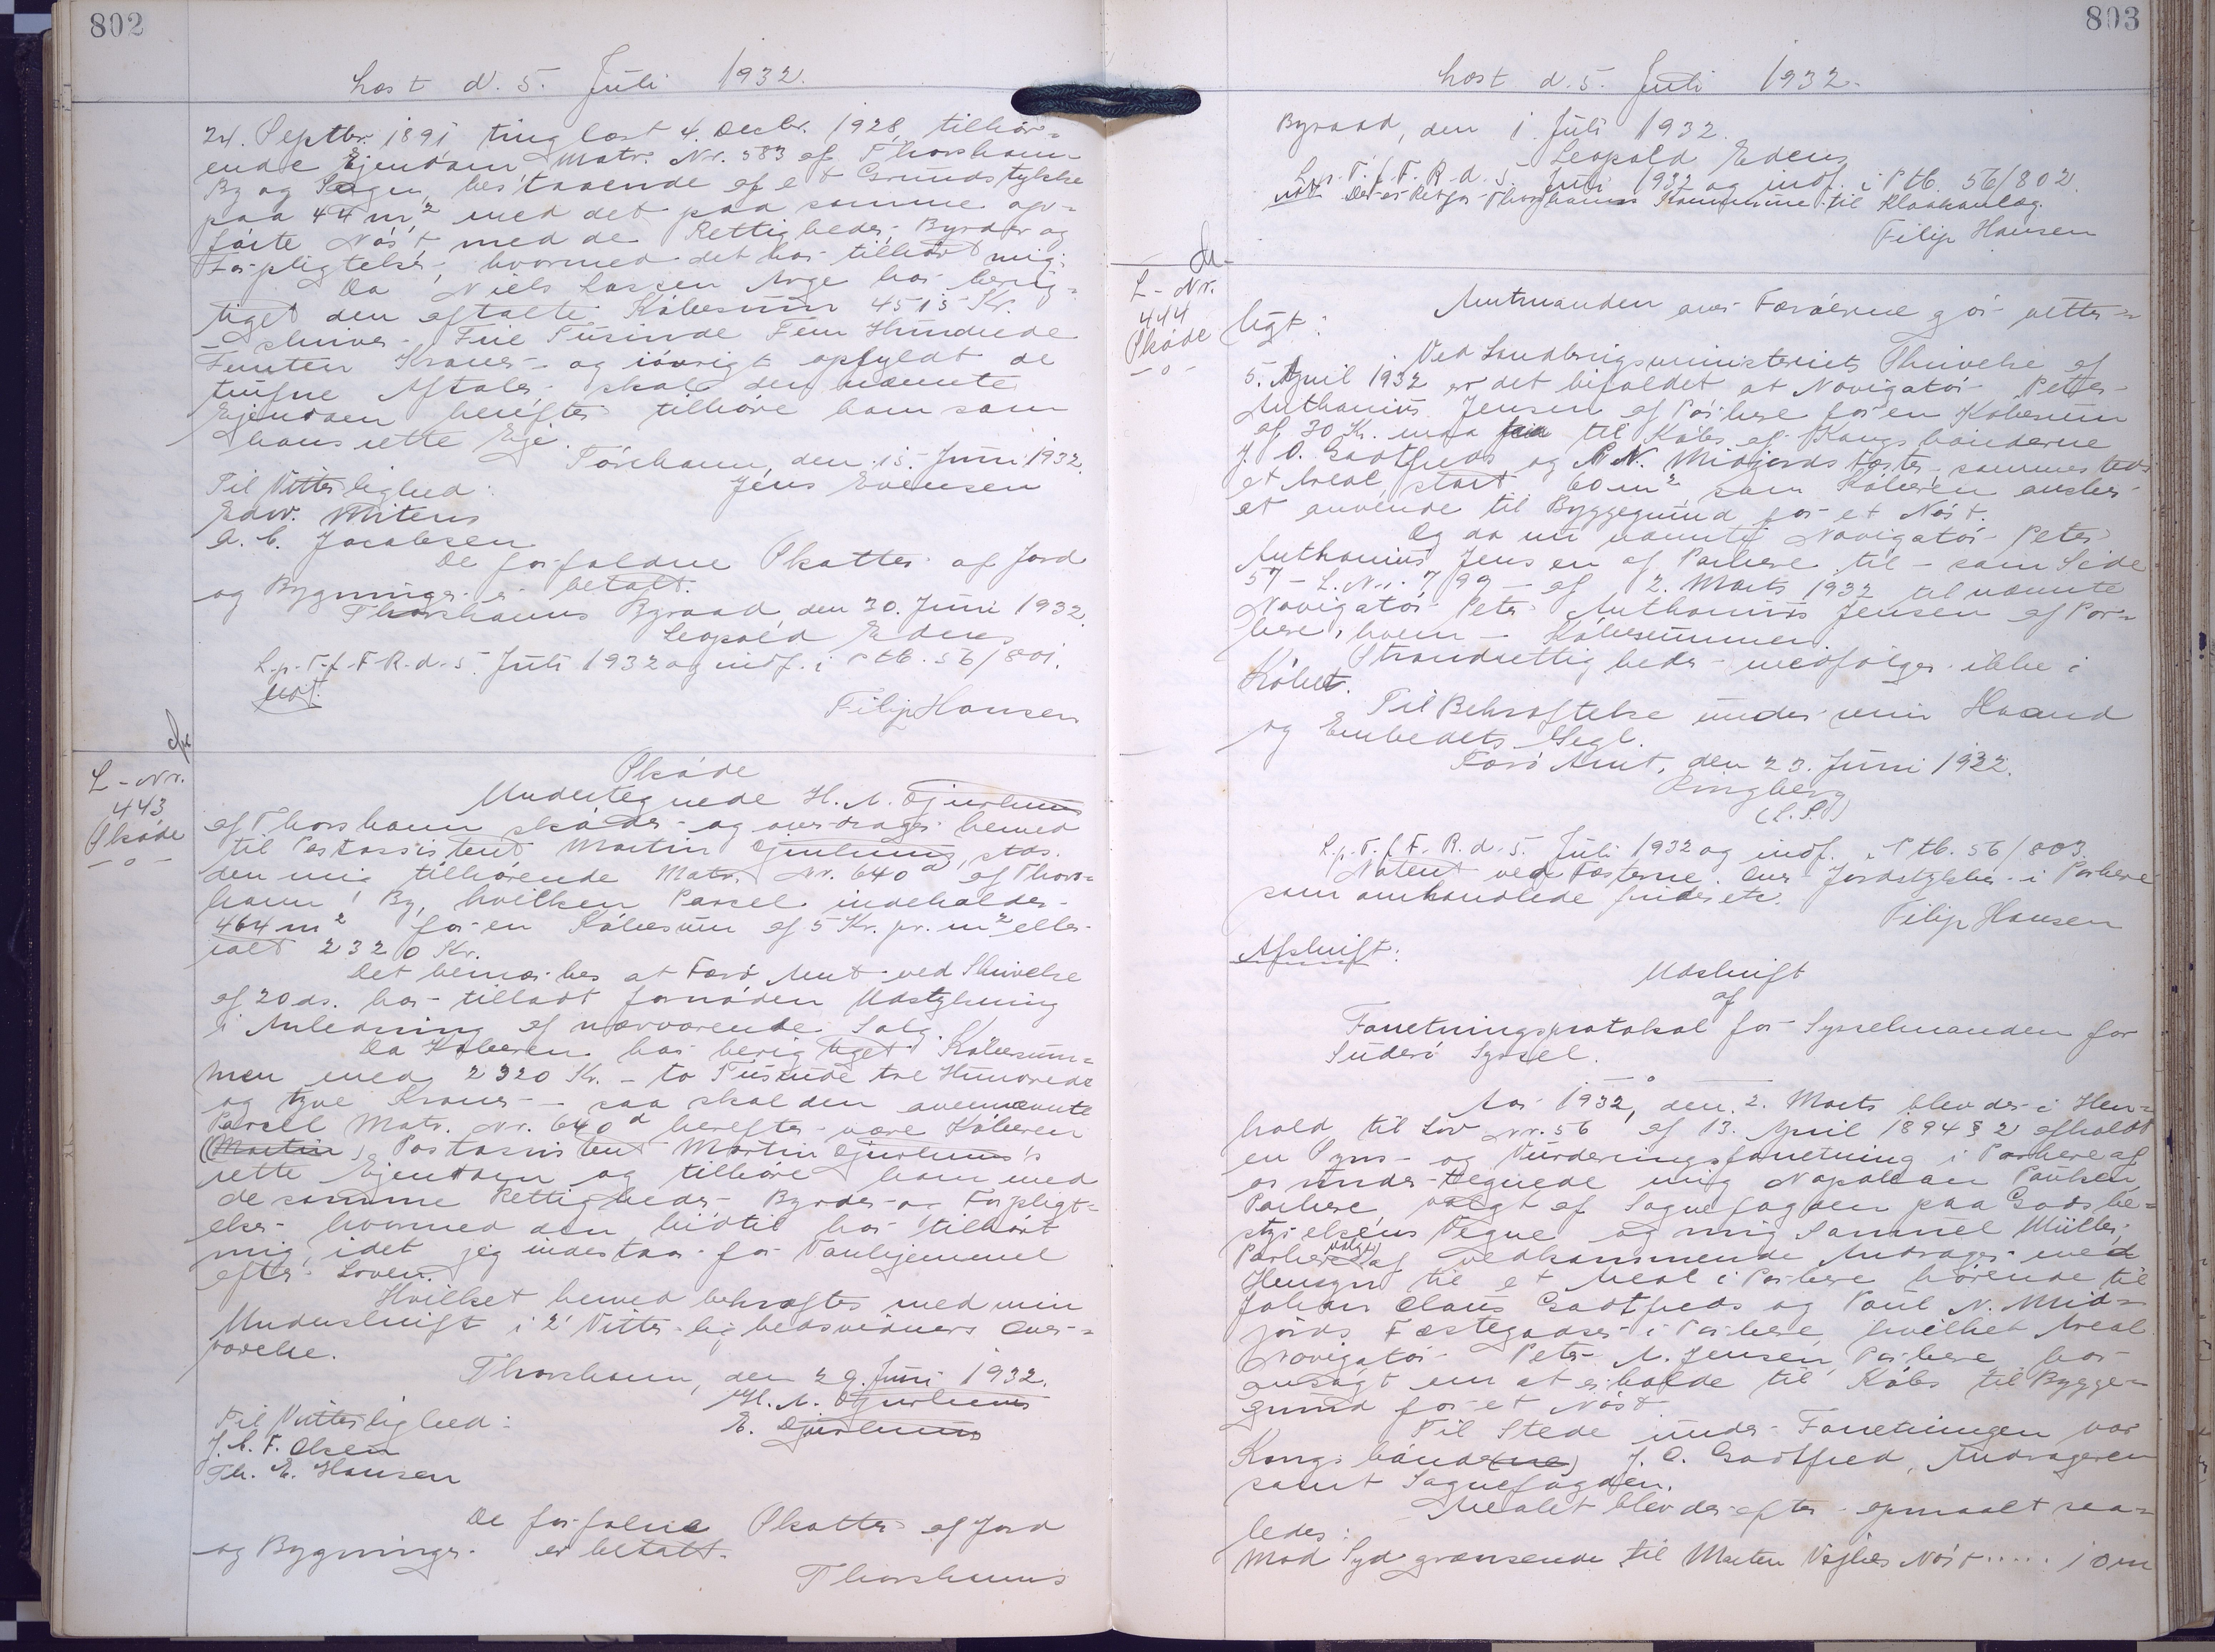 802
Læst d. 5. Juli 1932.
24. Septbr. 1891, tinglæst 4. Decbr. 1928, tilhør=
ende Ejendom Matr. Nr. 583 af Thorshavn
By og Sogn, bestaaende af et Grundstykke
paa 44 m², med det paa samme opo=
førte Nøst, med de Rettigheder, Byrder og
Forpligtelser, hvormed det har tilhørt mig.
Da Niels Larsen Arge har berig=
tiget den aftalte Købesum 4515 Kr.
skriver Fire Tusinde Fem Hundrede
Femten Kroner - og iøvrigt opfyldt de
trufne Aftaler skal den nævnte
Ejendom herefter tilhøre ham som
hans rette Eje.
Tórshavn, den 15. Juni 1932.
Til Vitterlighed: Jens Evensen
Edw. Mitens
A. C. Jacobsen
De forfaldne Skatter af Jord
og Bygninger er betalt.
Thorshavns Byraad, den 30. Juni 1932.
Leopold Edens
L. p. T. f. F. R. d. 5. Juli 1932 og indf. i Ptb. 56/801.
not.
Filip Hansen
L-Nr.
443
Skøde
-o-
Skøde
Undertegnede H. A. Djurhuus
af Thorshavn skøder og overdrager hermed
til Postassistent Martin Djurhuus, stds.
den mig tilhørende Matr. Nr. 640 d af Thors=
havn By, hvilken Parcel indeholder
464 m² for en Købesum af 5 Kr. pr. m² eller
ialt 2320 Kr.
Det bemærkes at Færø Amt ved Skrivelse
af 20 ds. har tilladt fornøden Udstykning
i Anledning af nærværende Salg.
Da Køberen har berigtiget Købesum=
men med 2320 Kr. - to Tusinde tre Hundrede
og tyve Kroner - saa skal den ovennævnte
Parcel Matr. Nr. 640 d herefter være Køberen
(Martin) Postassistent Martin Djurhuus's
rette Ejendom og tilhøre ham med
de samme Rettigheder Byrder og Forpligt=
elser hvormed den hidtil har tilhørt
mig, idet jeg indestaar for Vanhjemmel
efter Loven.
Hvilket herved bekræftes med min
Underskrift i 2 Vitterlighedsvidners Over=
værelse.
Thorshavn, den 29. Juni 1932.
H. A. Djurhuus
Til Vitterlighed: E. Djurhuus
J. C. F. Olsen
Th. E. Hansen
De forfaldne Skatter af Jord
og Bygninger er betalt.
Thorshavns
803
Læst d. 5. Juli 1932.
Byraad, den 1. Juli 1932.
Leopold Edens
L. p. T. f. F. R. d. 5. Juli 1932 og indf. i Ptb. 56/802.
not. Der er Ret for Thorshavns Kommune til Kloakanlæg.
Filip Hansen
L-Nr.
444
Skøde
-o-
Amtmanden over Færøerne gør vitter=
ligt:
Ved Landbrugsministeriets Skrivelse af
5. April 1932 er det bifaldet at Navigatør Peter
Anthonius Jensen af Porkere for en Købesum
af 30 Kr. maa til Købs af Kongsbønderne
J. O. Godtfreds og P. N. Midjords Fæster sammesteds
et Areal, stort 60 m², som Køberen ønsker
at anvende til Byggegrund for et Nøst.
Og da nu nævnte Navigatør Peter
Anthonius Jensen af Porkere til - som Side
57 - L. Nr. 799 - af 2. Marts 1932 til nævnte
Navigatør Peter Anthonius Jensen af Por=
kere, hvem - Købesummen
Strandrettigheder medfølger ikke i
Købet.
Til Bekræftelse under min Haand
og Embedets Segl.
Færø Amt, den 23. Juni 1932.
Ringberg
(L. S.)
L. p. T. f. F. R. d. 5. Juli 1932 og indf. i Ptb. 56/803.
Noteret ved Fæsterne over Jordstykker i Porkere
som omhandlede findes etc.
Filip Hansen
Afskrift:
Udskrift
af
Forretningsprotokol for Sysselmanden for
Suderø Syssel.
Aar 1932, den 2. Marts blev der i Hen=
hold til Lov Nr. 56 af 13. April 1894 § 2 afholdt
en Syns- og Vurderingsforretning i Porkere af
os undertegnede mig Napoleon Poulsen,
Porkere valgt af Sognefogden paa Godsbe=
styrelsens Vegne og mig Samuel Müller,
Porkere valgt af vedkommende Andrager med
Hensyn til et Areal i Porkere hørende til
Johan Olaus Godtfreds og Poul N. Mid=
jords Fæstegodser i Porkere, hvilket Areal
Navigatør Peter A. Jensen, Porkere har
ansøgt om at erholde til Købs til Bygge=
grund for et Nøst.
Til Stede under Forretningen var
Kongsbønd(erne) J. O. Godtfred, Andrageren
samt Sognefogden.
Arealet blev derefter opmaalt saa=
ledes:
Mod Syd grænsende til Morten Vágbes Nøst..... 10 m